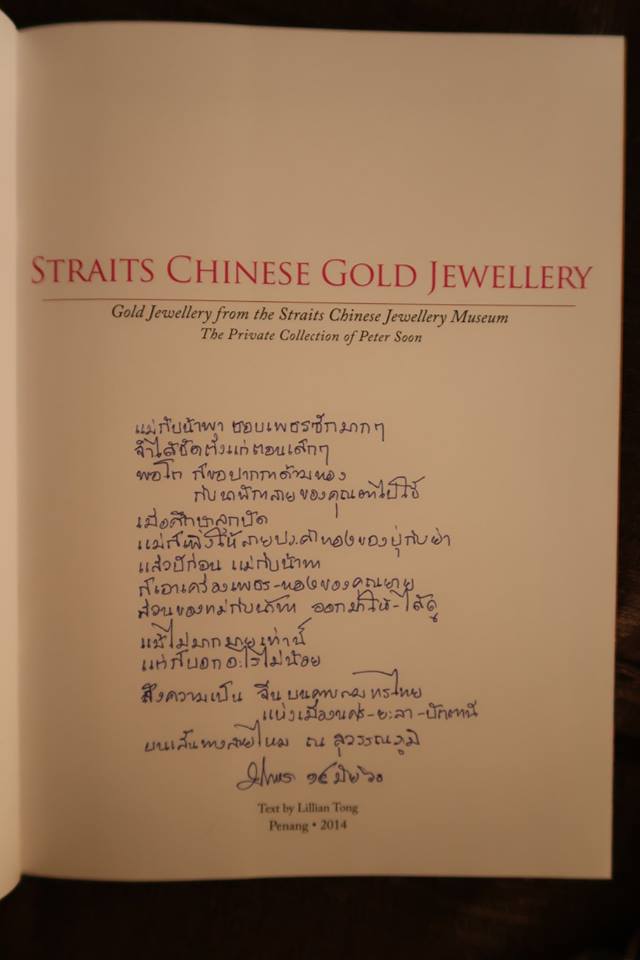 STRAITS CHINESE GOLD JEWELLERY
Gold Jewellery from the Straits Chinese Jewellery Museum
The Private Collection of Peter Soon
แม่กับน้าพา ชอบเพชรซีกมากๆ
จำได้ชัดตั้งแต่ตอนเด็กๆ
พอโต ก็ขอปากกาด้ามทอง
กับนาฬิกาสาย ของคุณตาไปใช้
เมื่อศึกษาลูกปัด
แม่ก็เพิ่งให้สายประคำทองของปู่กับย่า
แล้วปีก่อน แม่กับน้าพา
ก็เอาเครื่องเพชร-ทองของคุณยาย
ส่วนของแม่กับน้าพา ออกมาให้-ได้ดู
แม้ไม่มากมายเท่านี้
แต่ก็บอกอะไรไม่น้อย
ถึงความเป็น จีน บนคาบสมุทรไทย
แห่งเมืองนคร-ยะลา-ปัตตานี
บนเส้นทางสายไหม ณ สุวรรณภูมิ
๖๐
Text by Lillian Tong
Penang • 2014